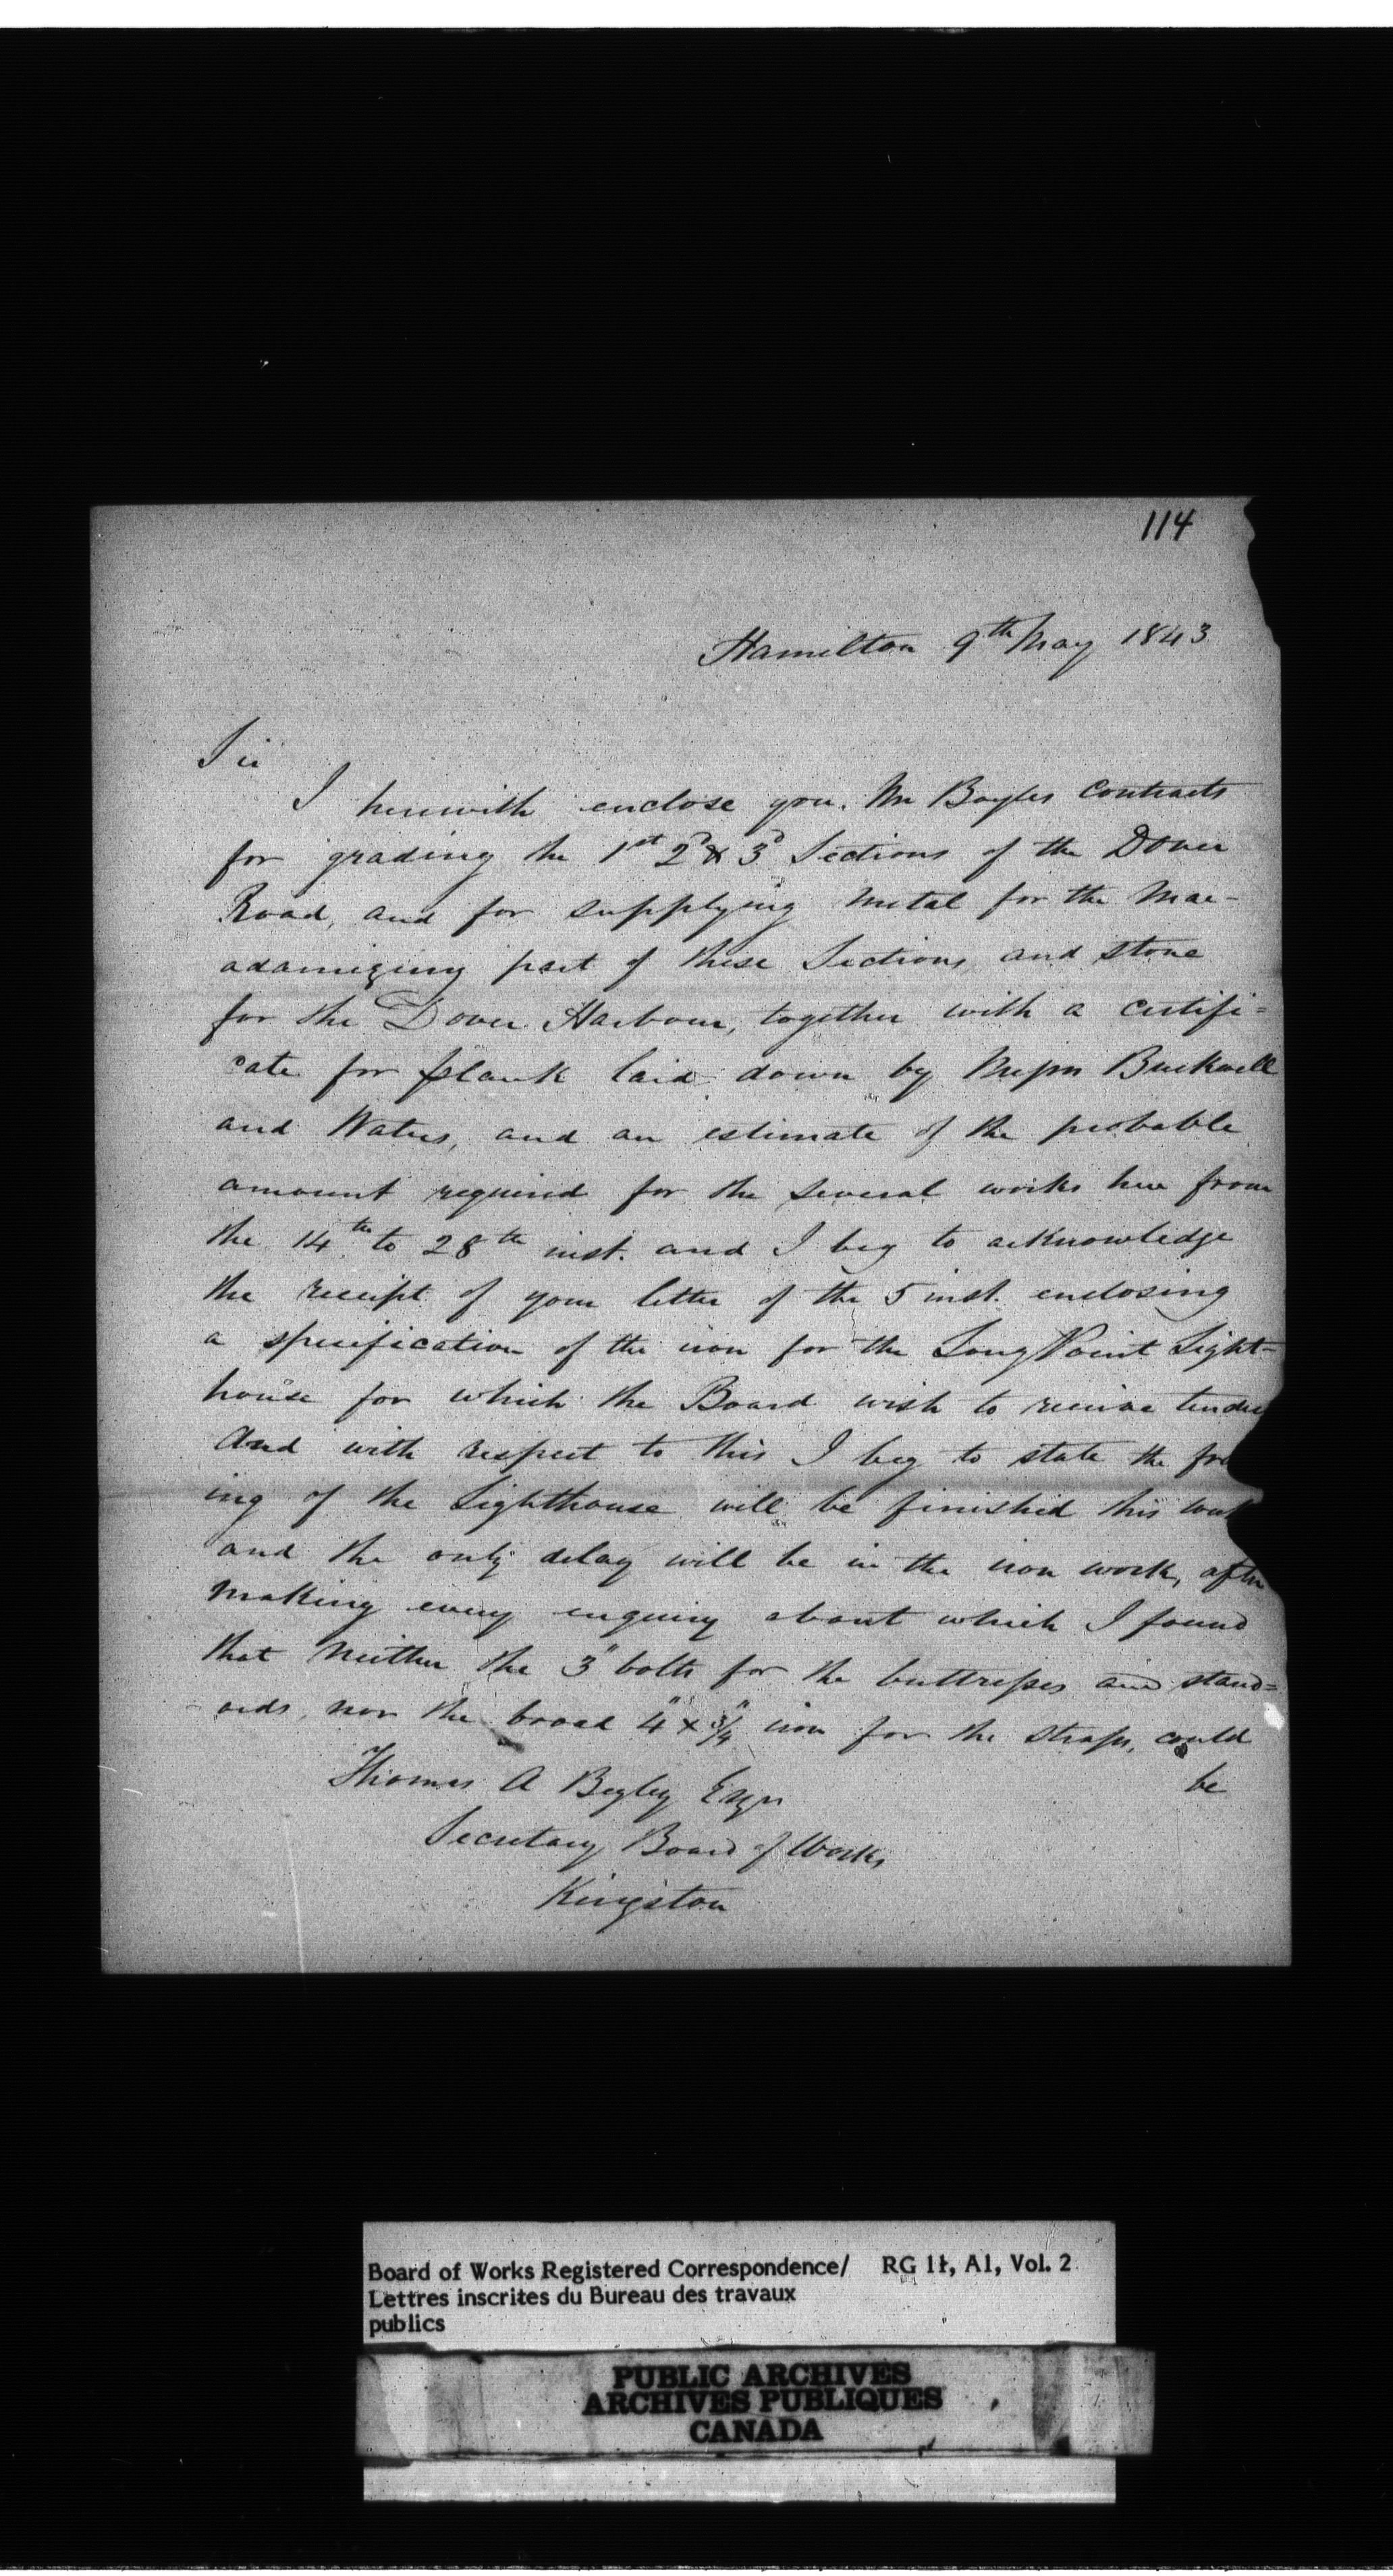 114
Hamilton 9th May 1843
Sir
I herewith enclose you, Mr Bayles Contracts
for grading the 1st 2d & 3d Sections of the Dover
Road, and for supplying metal for the Mac-
adamizing part of these Sections and stone
for the Dover Harbour, together with a certifi=
cate for plank laid down by Messrs Buckwell
and Waters, and an estimate of the probable
amount required for the several works here from
the 14th to 28th inst. and I beg to acknowledge
the receipt of your letter of the 5 inst. enclosing
a specification of the iron for the Long Point Light=
house for which the Board wish to receive tender
And with respect to this I beg to state the fra
ing of the Lighthouse will be finished this week
and the only delay will be in the iron work, after
making every enquiry about which I found
that neither the 3" bolts for the buttresses and stand=
ards, nor the broad 4" x 3/4" iron for the straps, could
be
Thomas A Begley Esqr
Secretary Board of Works
Kingston
Board of Works Registered Correspondence/ RG 11, A1, Vol. 2
Lettres inscrites du Bureau des travaux
publics
PUBLIC ARCHIVES
ARCHIVES PUBLIQUES
CANADA